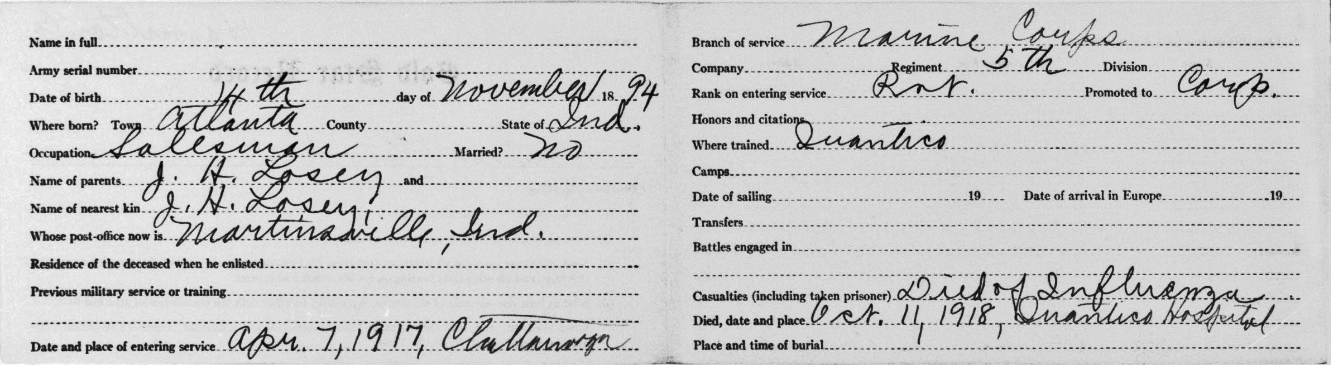 Name in full
Army serial number
Date of birth 14th day of November 18 94
Where born? Town Atlanta County State of Ind.
Occupation Salesman Married? No
Name of parents J. H. Losey and
Name of nearest kin J. H. Losey,
Whose post-office now is Martinsville, Ind.
Residence of the deceased when he enlisted
Previous military service or training
Date and place of entering service Apr. 7, 1917, Chattanooga
Branch of service Marine Corps
Company Regiment 5th Division
Rank on entering service Promoted to Corp.
Honors and citations
Where trained Quantico
Camps
Date of sailing 19 Date of arrival in Europe 19
Transfers
Battles engaged in
Casualties (including taken prisoner) Died of Influenza
Died, date and place Oct. 11, 1918, Quantico Hospital
Place and time of burial